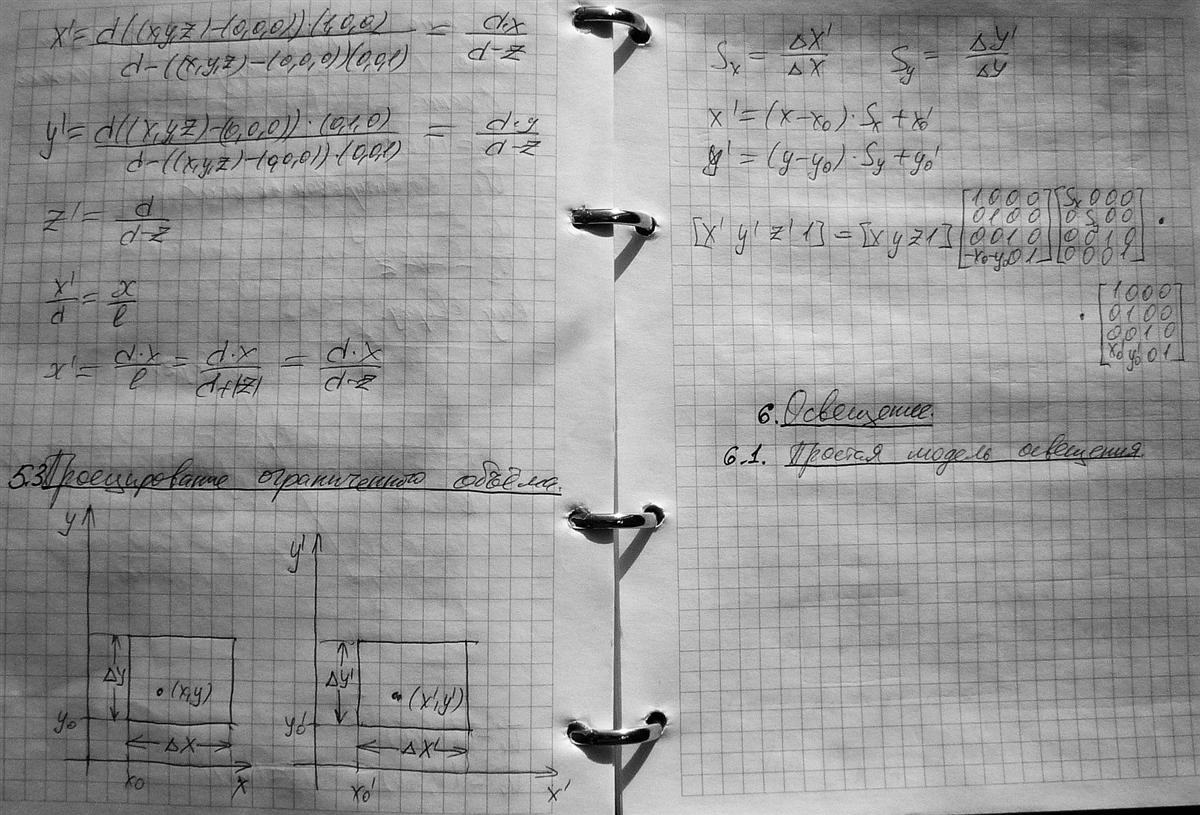 x' = d((x,y,z)-(0,0,0))·(1,0,0) / d-((x,y,z)-(0,0,0))(0,0,1) = d·x / d-z
y' = d((x,y,z)-(0,0,0))·(0,1,0) / d-((x,y,z)-(0,0,0))·(0,0,1) = d·y / d-z
z' = d / d-z
x'/d = x/l
x' = d·x / l = d·x / d+|z| = d·x / d-z
5.3 Проецирование ограниченного объёма.
y
Δy
•(x,y)
y₀
ΔX
x₀
x
y'
Δy'
•(x',y')
y₀'
ΔX'
x₀'
x'
Sx = ΔX' / ΔX Sy = ΔY' / ΔY
x' = (x-x₀)·Sx + x₀'
y' = (y-y₀)·Sy + y₀'
[x' y' z' 1] = [x y z 1] [1 0 0 0; 0 1 0 0; 0 0 1 0; -x₀ -y₀ 0 1] [Sx 0 0 0; 0 Sy 0 0; 0 0 1 0; 0 0 0 1] ·
· [1 0 0 0; 0 1 0 0; 0 0 1 0; x₀' y₀' 0 1]
6. Освещение.
6.1. Простая модель освещения